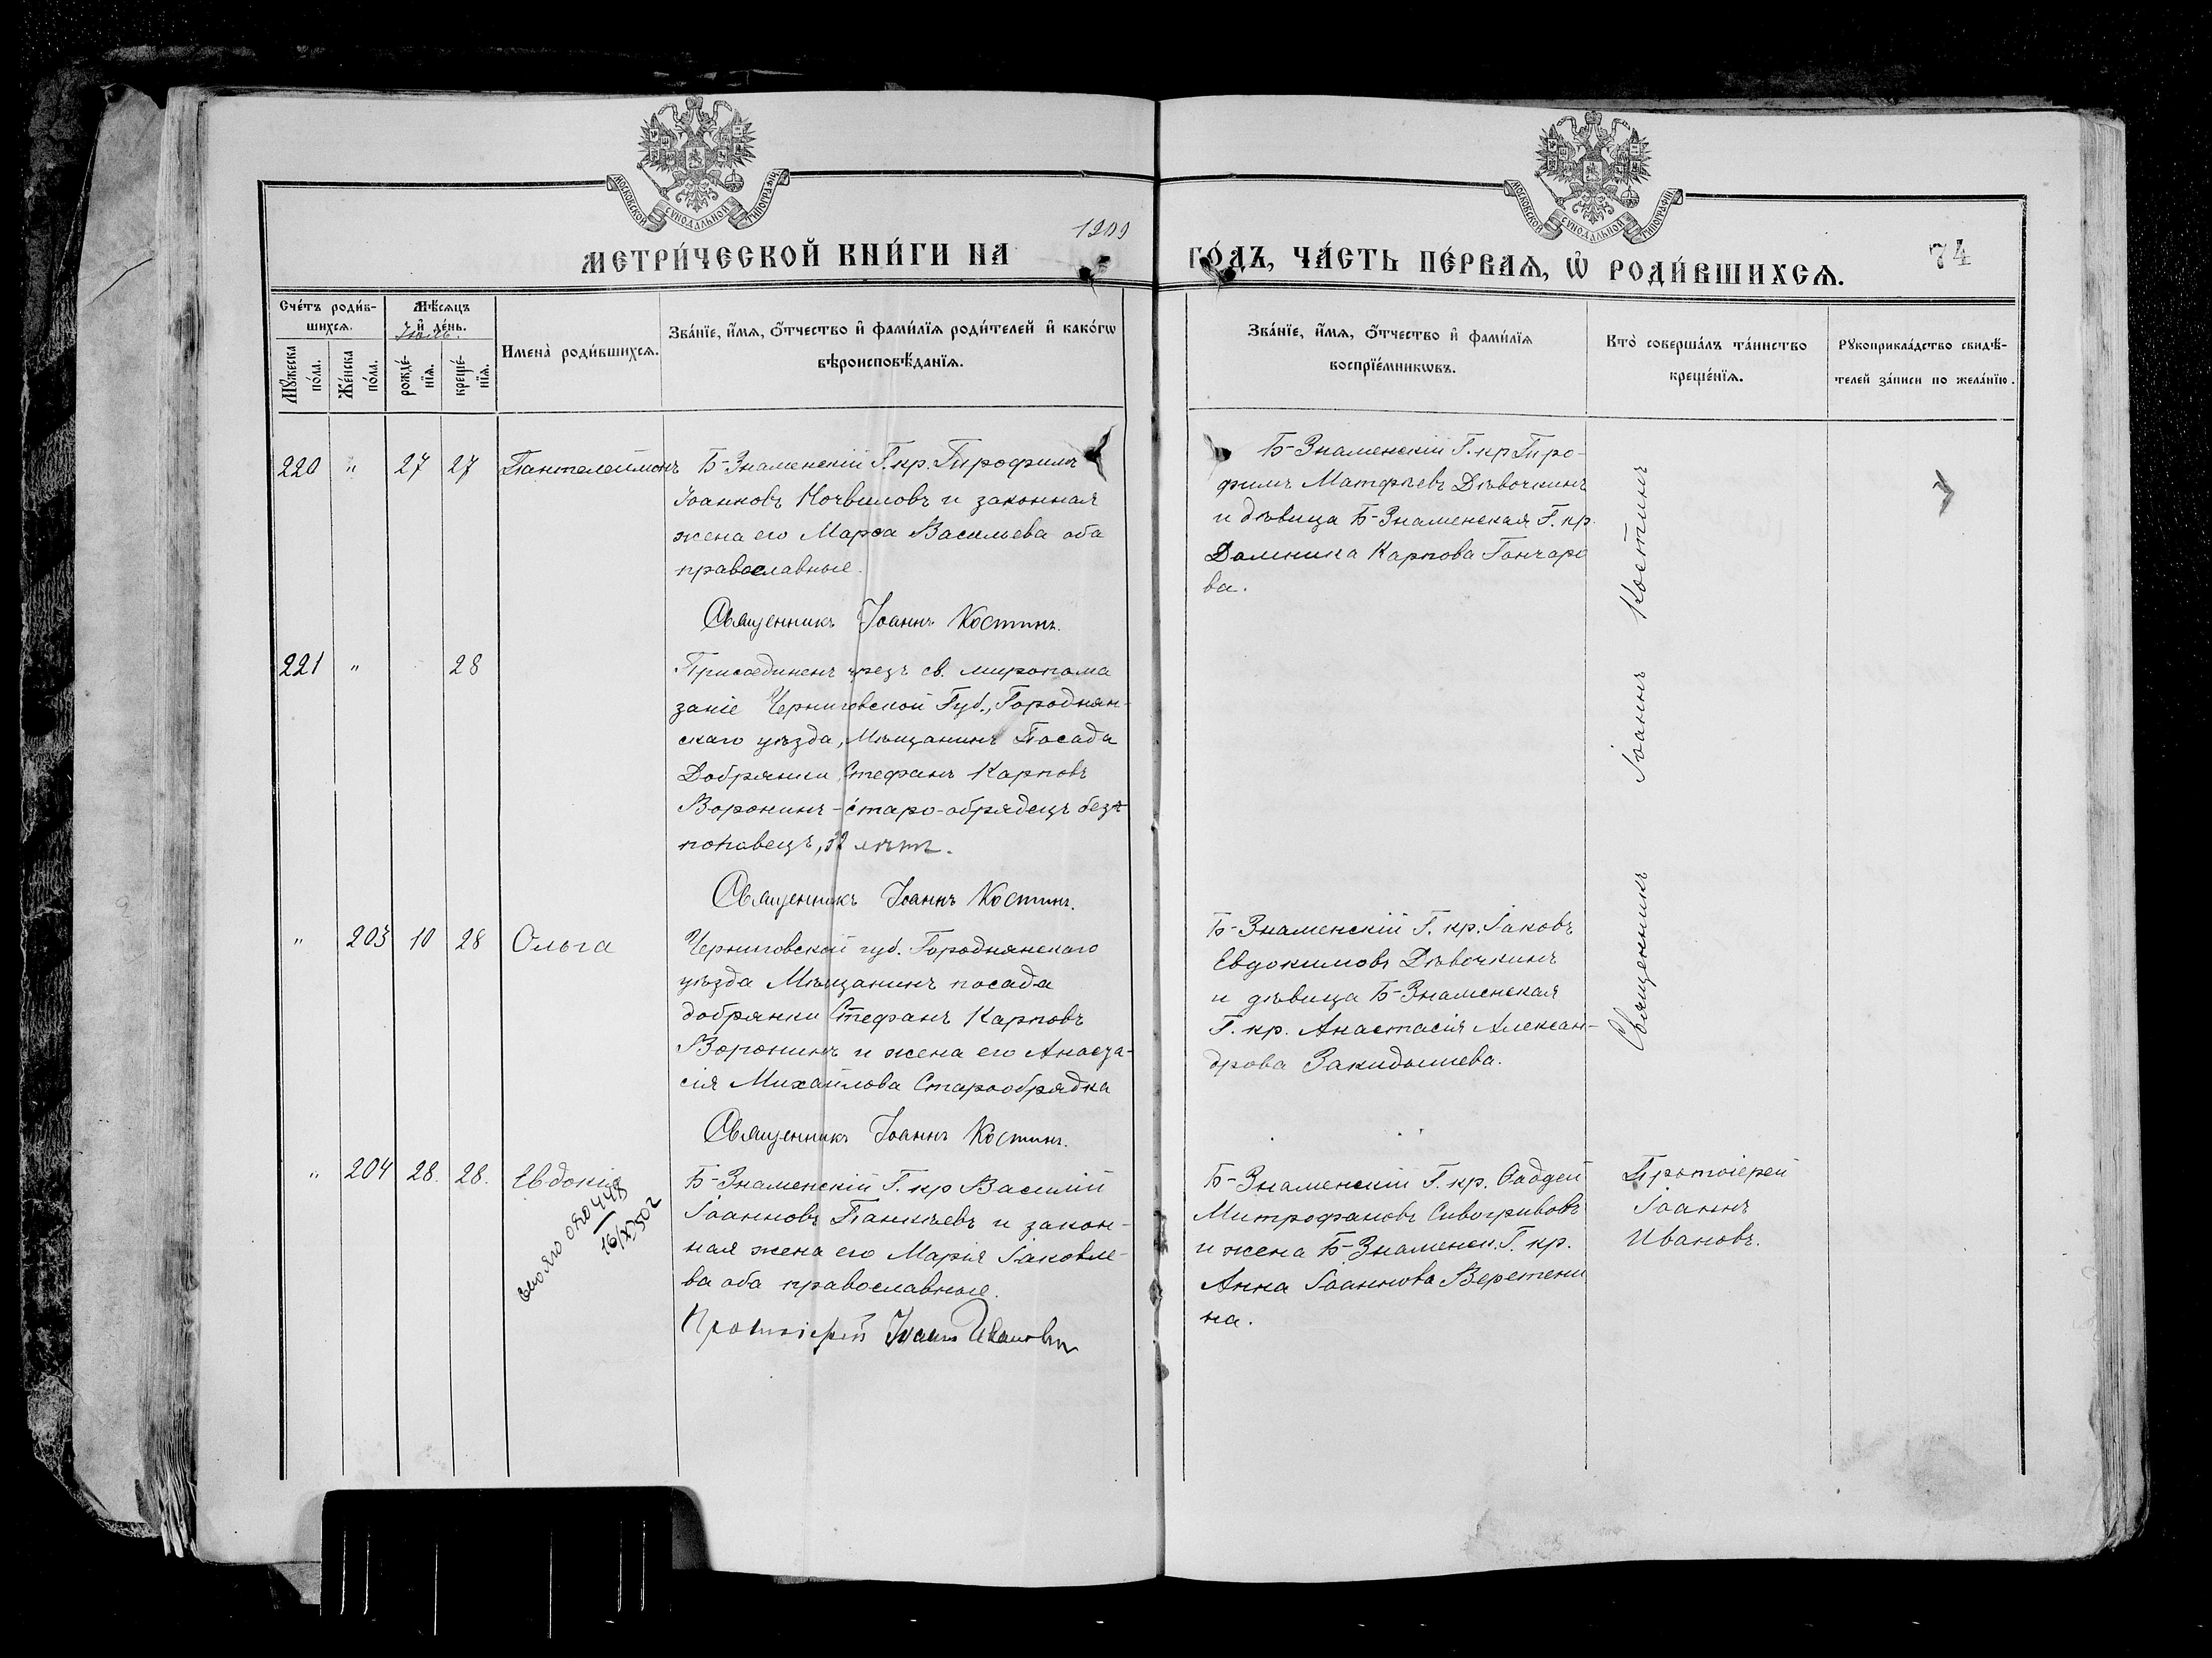 МОСКОВСКОЙ СУНОДАЛЬНОЙ ТИПОГРАФІИ
МОСКОВСКОЙ СУНОДАЛЬНОЙ ТИПОГРАФІИ
МЕТРИ́ЧЕСКОЙ КНИ́ГИ НА
ГО́ДЪ, ЧА́СТЬ ПЕ́РВАЯ, Ѡ҆ РОДИ́ВШИХСЯ.
74
Сче́тъ роди́в-
шихся.
Мꙋ́жеска
по́ла.
Же́нска
по́ла.
Мѣ́сяцъ
и҆ де́нь.
Іюль.
рожде́-
нїя.
креще́-
нїя.
И҆мена̀ роди́вшихся.
Зва́нїе, и҆́мя, ѻ҆́тчество и҆ фами́лїя роди́телей и҆ како́гѡ
вѣроисповѣ́данїя.
Зва́нїе, и҆́мя, ѻ҆́тчество и҆ фами́лїя
воспрїе́мникѡвъ.
Кто̀ соверша́лъ та́инство
креще́нїя.
Рꙋкоприкла́дство свидѣ́-
телей за́писи по жела́нїю.
220 " 27 27 Пантелеимонъ
Б-Знаменскій Г. кр. Тирофилъ
Іоанновъ Ночвиловъ и законная
жена его Марѳа Васильева оба
православные.
Священникъ Іоаннъ Костинъ.
Б-Знаменскій Г. кр
филъ Матфѣевъ Дѣвочкинъ
и дѣвица Б-Знаменская Г. кр.
Домника Карпова Гончаро
ва.
221 " 28
Присоединенъ чрезъ св. миропома
заніе Черниговской Губ., Городнян-
скаго уѣзда, Мѣщанинъ Посада
Добрянки, Стефанъ Карповъ
Воронинъ - старо-обрядецъ безъ
поповецъ, лѣтъ.
Священникъ Іоаннъ Костинъ.
" 203 10 28 Ольга
Черниговской губ. Городнянскаго
уѣзда Мѣщанинъ посада
добрянки Стефанъ Карповъ
Воронинъ и жена его Анаста-
сія Михаилова Старообрядка
Священникъ Іоаннъ Костинъ.
Б-Знаменскій Г. кр. Іаковъ
Евдокимовъ Дѣвочкинъ
и дѣвица Б-Знаменская
Г. кр. Анастасія Алексан-
дрова Закидышева.
Священникъ Іоаннъ Костинъ
" 204 28. 28. Евдокія
Б-Знаменскій Г. кр Василій
Іоанновъ Панкѣевъ и закон-
ная жена его Марія Іаковле-
ва оба православные.
Протоіерей Іоаннъ Ивановъ
Б-Знаменскій Г. кр. Ѳаддей
Митрофановъ Сивогривовъ
и жена Б-Знаменск. Г. кр.
Анна Іоаннова Веретени
на.
Протоіерей
Іоаннъ
Ивановъ.